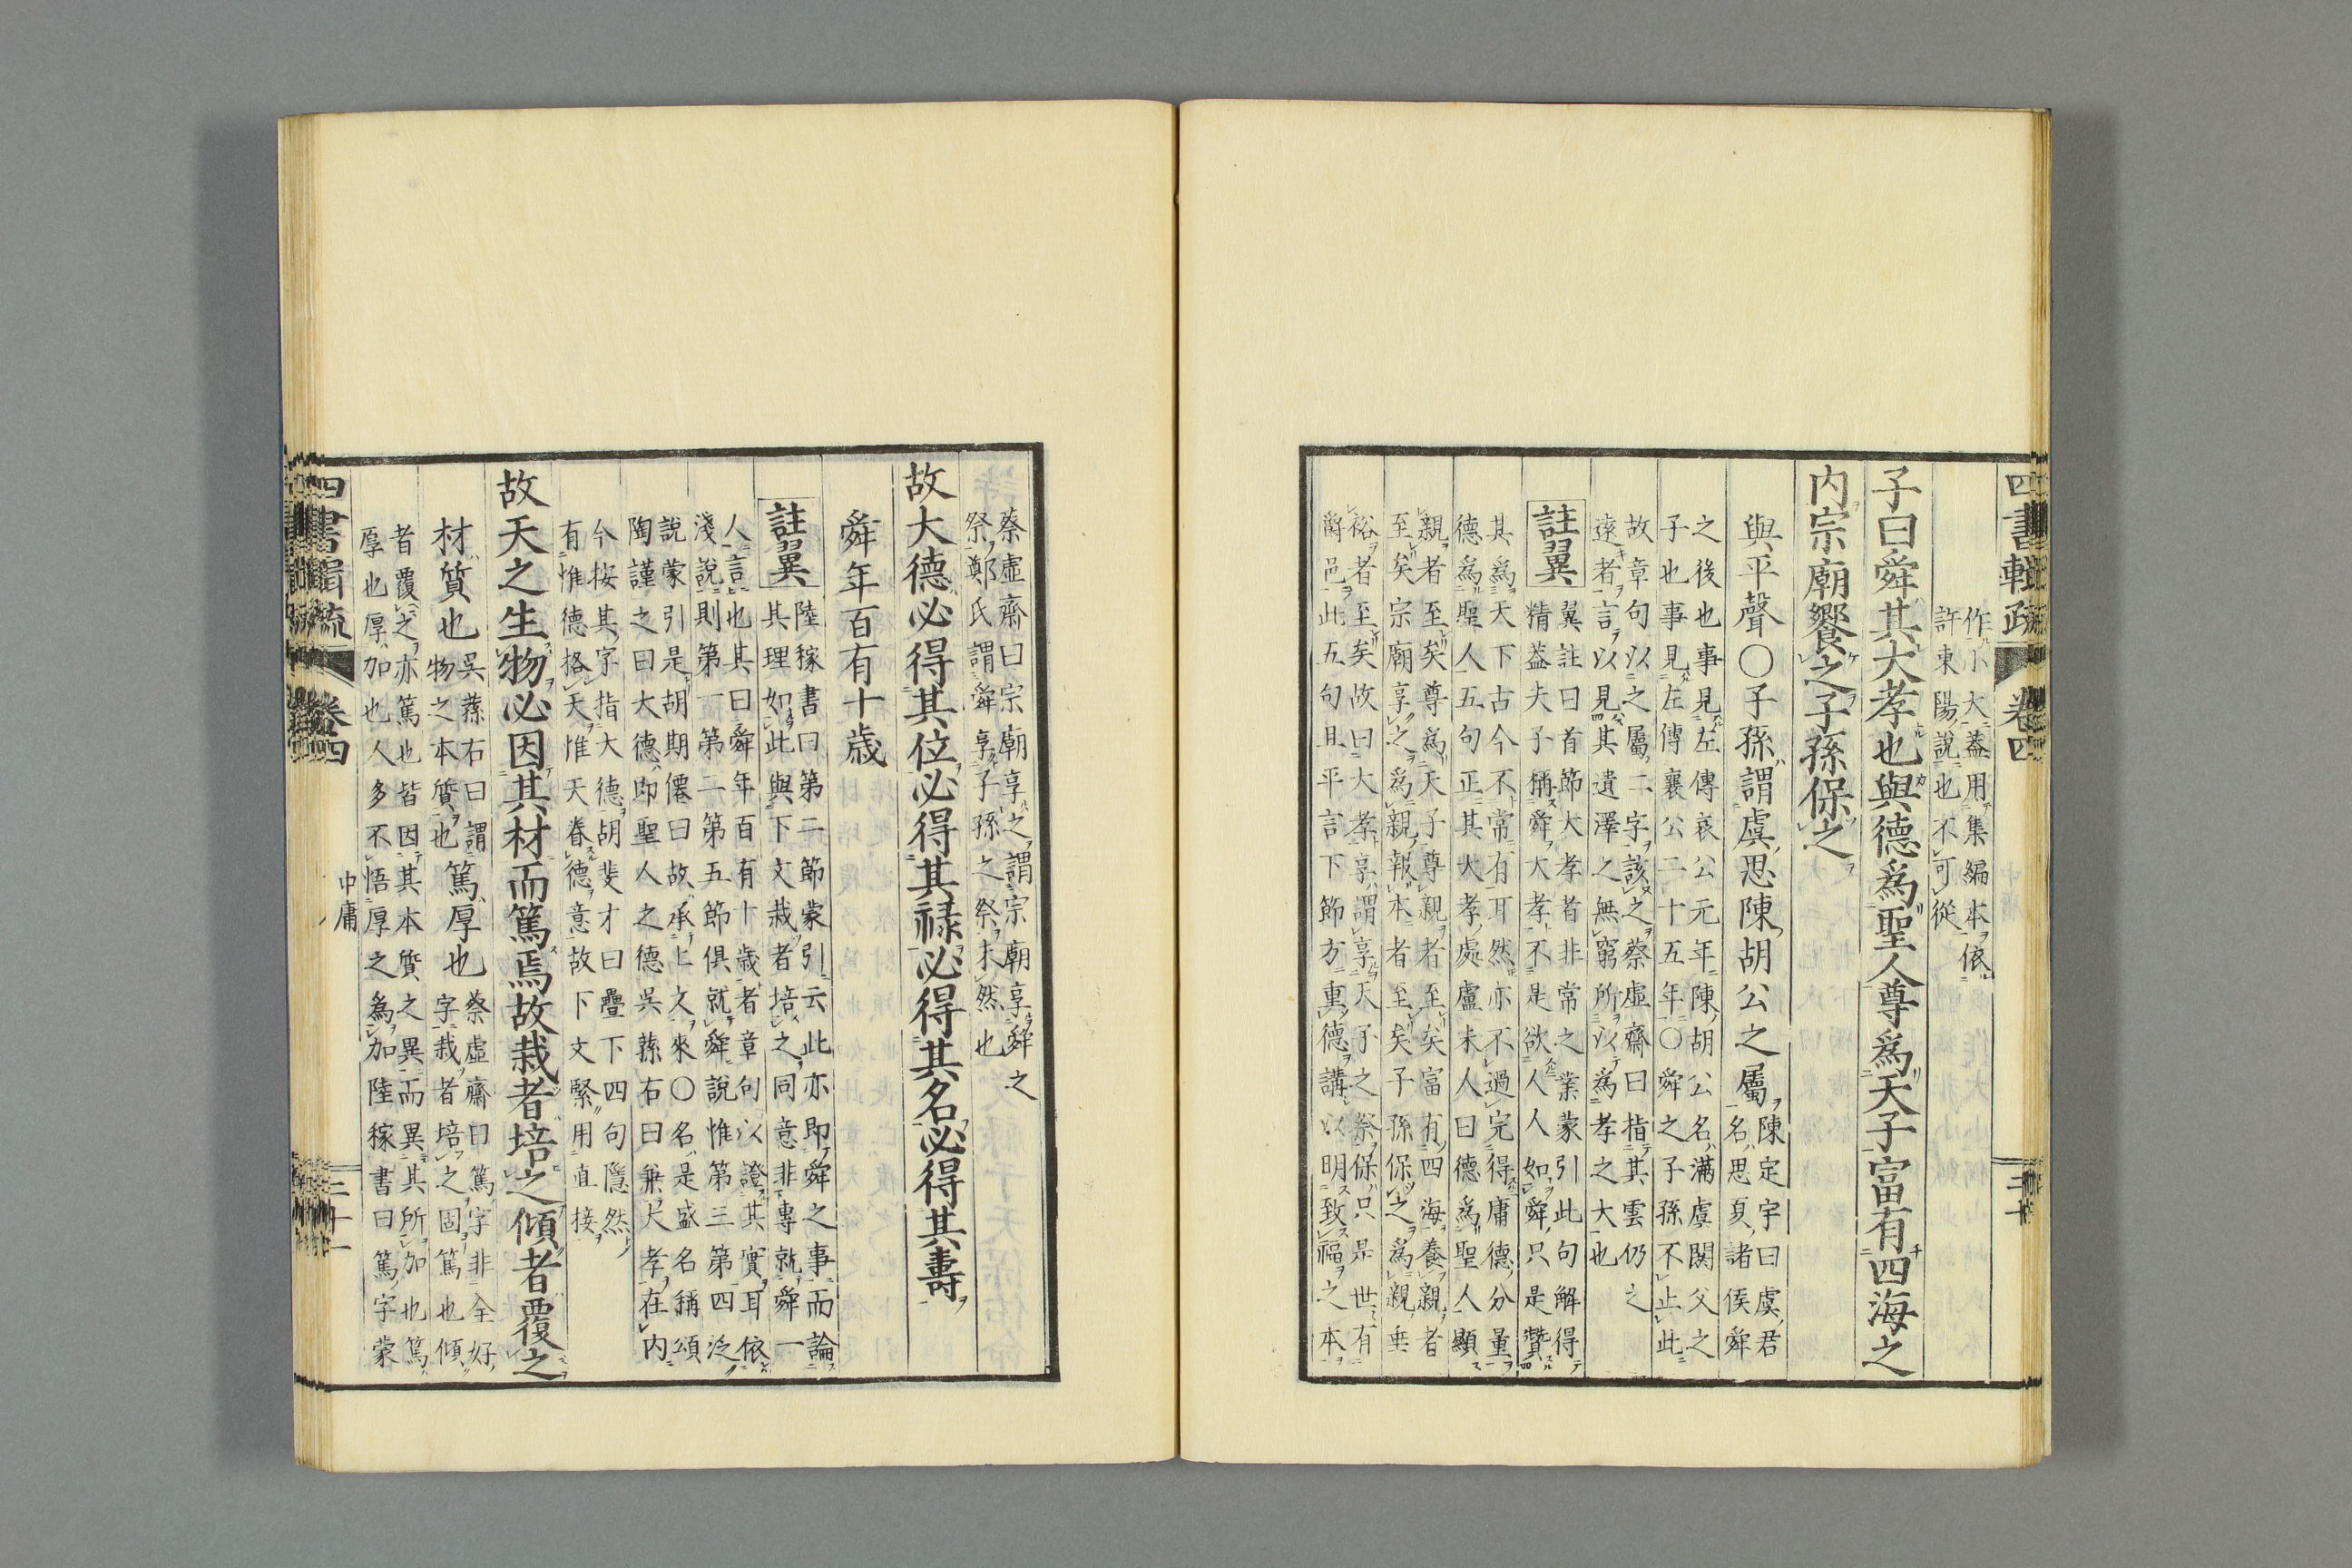 四書輯疏 卷四 三十
作小大蓋用集編本依
許東陽說也不可從
子曰舜其大孝也與德為聖人尊為天子富有四海之
內宗廟饗之子孫保之
與平聲○子孫謂虞思陳胡公之屬
陳定宇曰虞君
名思夏諸侯舜
之後也事見左傳哀公元年陳胡公名滿虞閼父之
子也事見左傳襄公二十五年○舜之子孫不止此
故章句以之屬二字該之蔡虛齋曰指其雲仍之
遠者言以見其遺澤之無窮所以為孝之大也
註翼
翼註曰首節大孝者非常之業蒙引此句解得
精蓋夫子稱舜大孝不是欲人人如舜只是贊
其為天下古今不常有耳然亦不過完得庸德分量
德為聖人五句正其大孝處盧未人曰德為聖人顯
親者至矣尊為天子尊親者至矣富有四海養親者
至矣宗廟享之為親報本者至矣子孫保之為親垂
裕者至矣故曰大孝享謂享天子之祭保只是世有
爵邑此五句且平言下節方重德講以明致福之本
蔡虛齋曰宗廟享之謂宗廟享舜之
祭鄭氏謂舜享子孫之祭未然也
故大德必得其位必得其祿必得其名必得其壽
舜年百有十歲
註翼
陸稼書曰第二節蒙引云此亦即舜之事而論
其理如此與下文栽者培之同意非專就舜一
人言也其曰舜年百有十歲者章句以證其實耳依
淺說則第一第二第五節俱就舜說惟第三第四泛
說蒙引是胡期僊曰故承上文來○名是盛名稱頌
陶謹之曰大德即聖人之德吳蓀右曰兼大孝在內
今按其字指大德胡斐才曰疊下四句隱然
有惟德格天惟天眷德意故下文緊用直接
故天之生物必因其材而篤焉故栽者培之傾者覆之
材質也
吳蓀右曰謂
物之本質也
篤厚也
蔡虛齋曰篤字非全好
字栽者培之固篤也傾
者覆之亦篤也皆因其本質之異而異其所加也篤
厚也厚加也人多不悟厚之為加陸稼書曰篤字蒙
四書輯疏 卷四 中庸 三十一